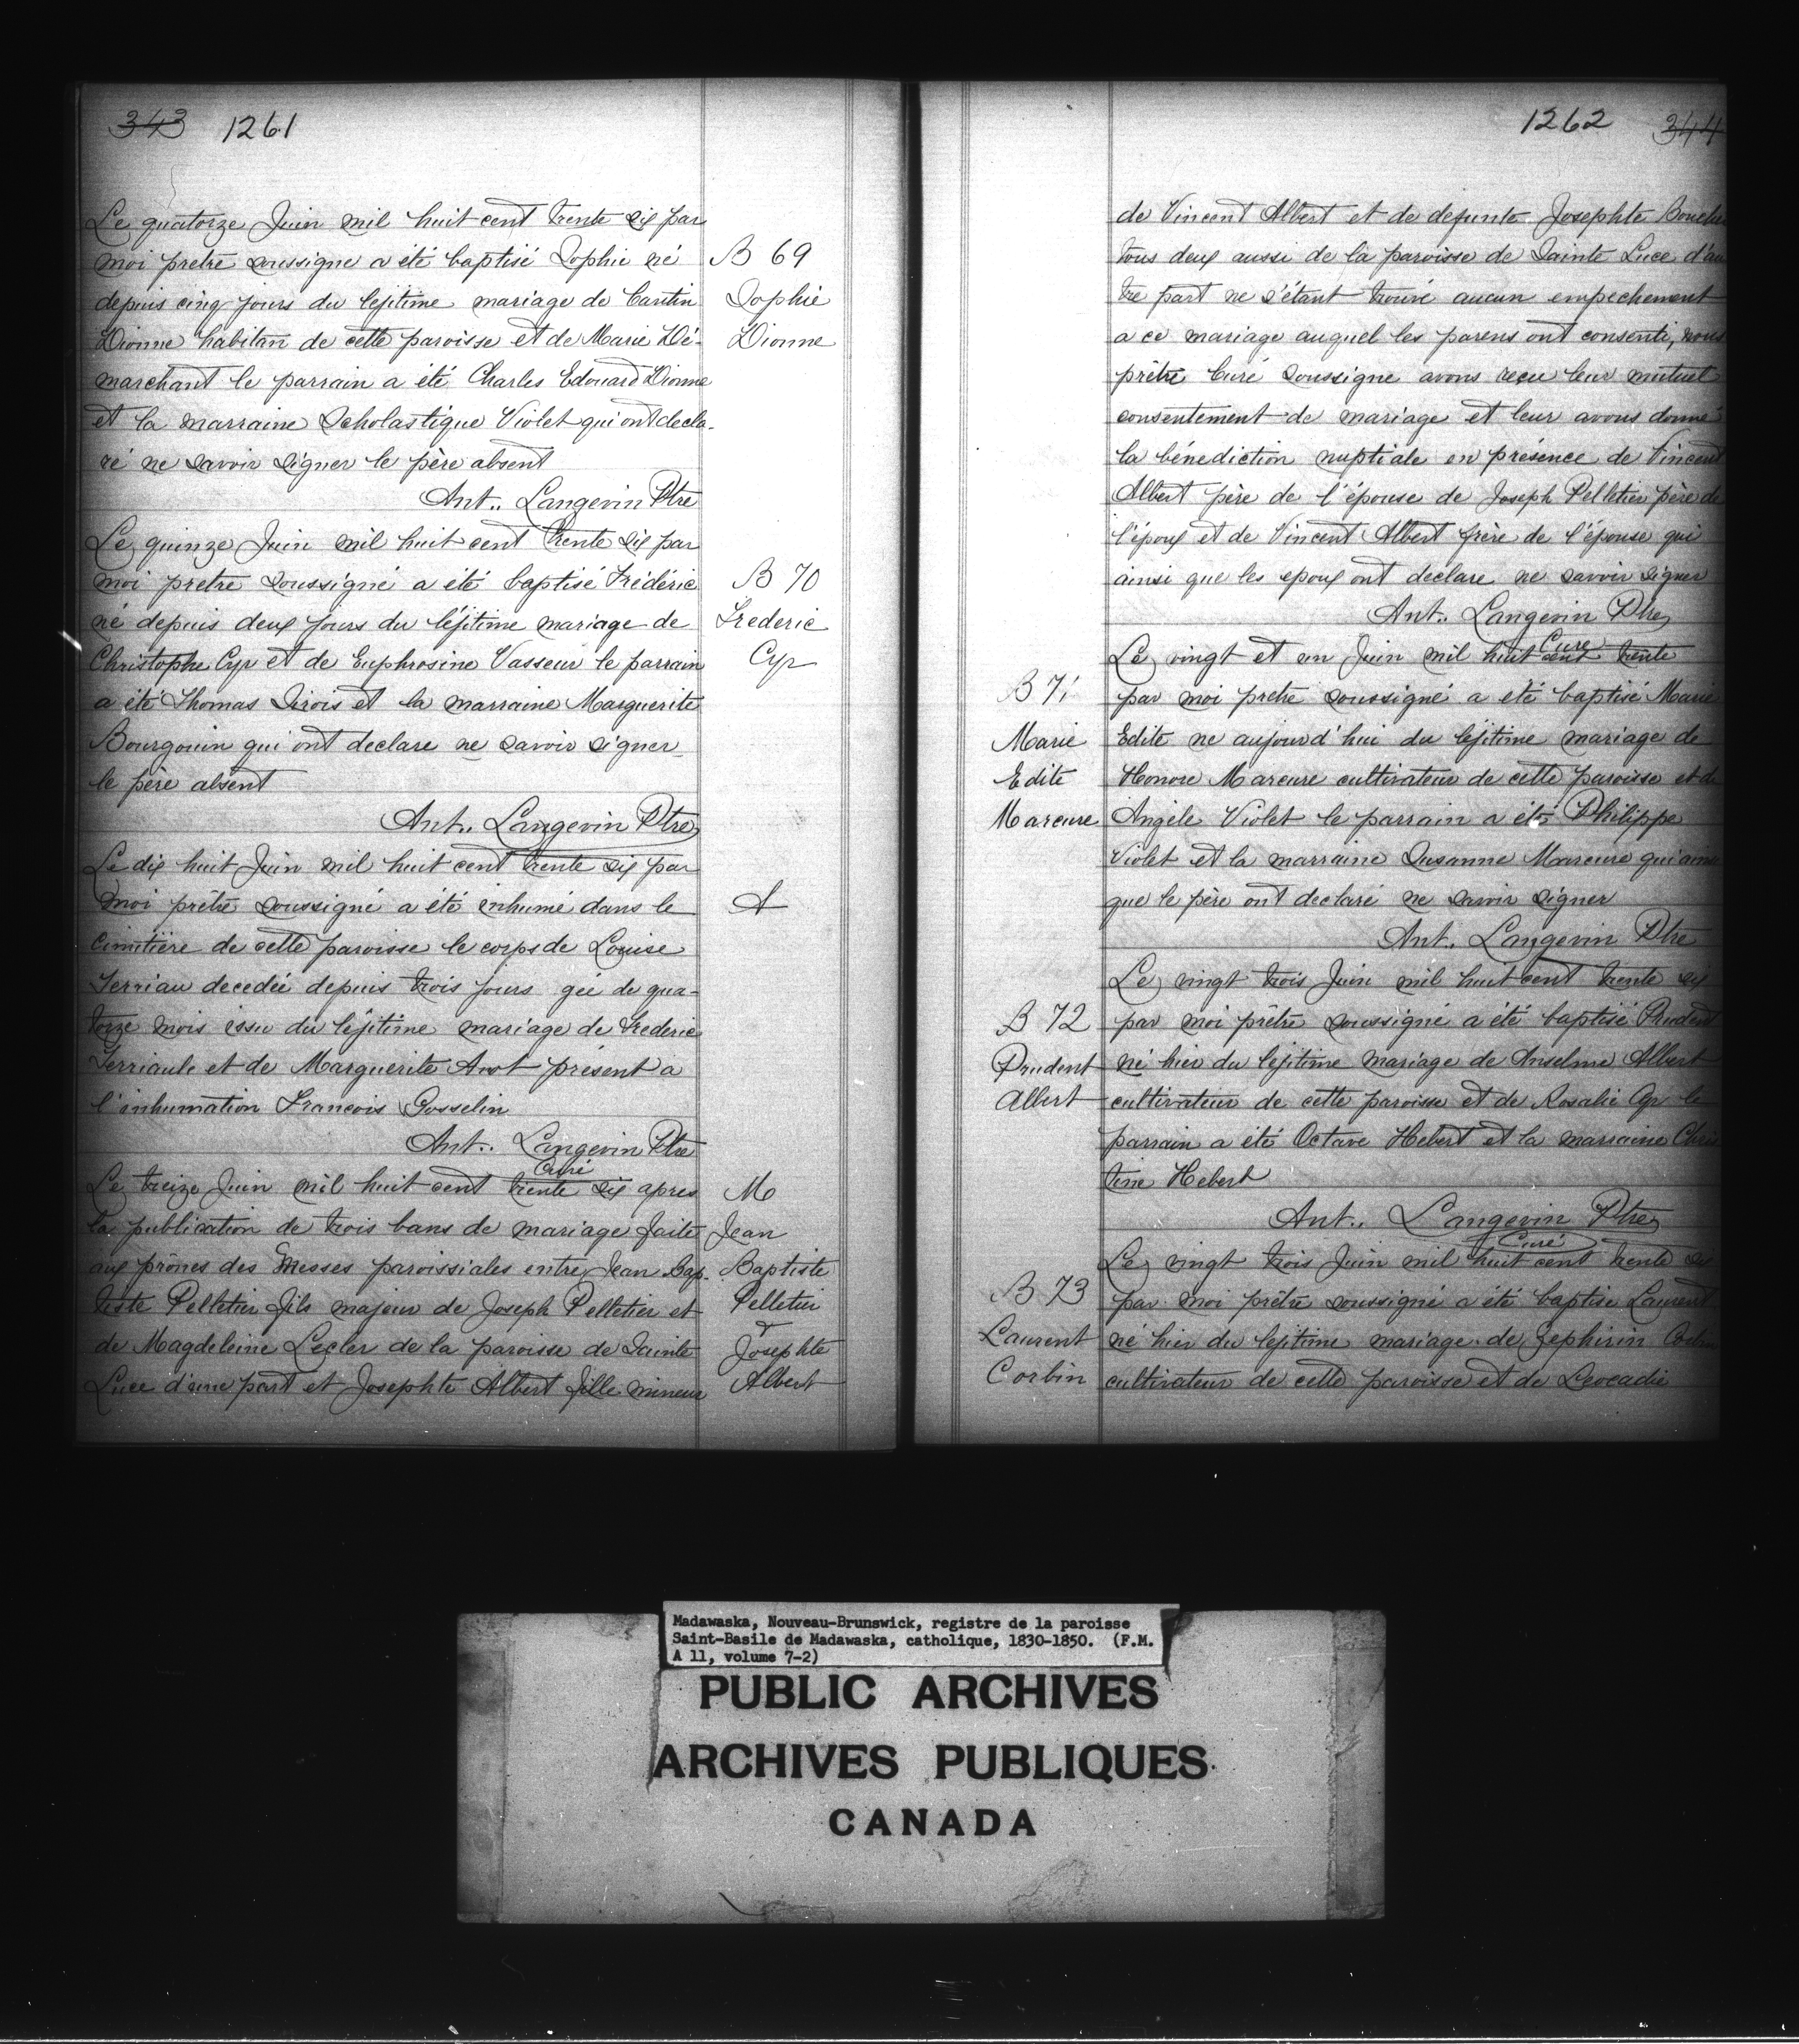 343 1261
Le quatorze Juin mil huit cent trente six par
moi pretre soussigne a été baptisé Sophie né
depuis cinq jours du lejitime mariage de
Dionne habitan de cette paroisse et de Marie Dé-
marchant le parrain a été Charles Edouard Dionne
et la marraine Scholastique Violet qui ont decla-
ré ne savoir signer le père absent
Ant.. Langevin Ptre
B 69
Sophie
Dionne
Le quinze Juin mil huit cent trente six par
moi pretre soussigné a été baptisé Frédéric
né depuis deux jours du léjitime mariage de
Christophe Cyr et de Euphrosine Vasseur le parrain
a été Thomas Sirois et la marraine Marguerite
Bourgouin qui ont declare ne savoir signer
le père absent
Ant.. Langevin Ptre
B 70
Frederic
Cyr
Le dix huit Juin mil huit cent trente six par
moi prêtre soussigné a été inhumé dans le
cimitière de cette paroisse le corps de Louise
Terriau decedée depuis trois jours gée de qua-
torze mois issu du léjitime mariage de Frederic
Terriault et de Marguerite présent a
l'inhumation Francois Gosselin
Ant.. Langevin Ptre
Curé
Le treize Juin mil huit cent trente six apres
la publication de trois bans de mariage faite
aux prônes des Messes paroissiales entre Jean Bap-
tiste Pelletier fils majeur de Joseph Pelletier et
de Magdeleine Lecler de la paroisse de Sainte
Luce d'une part et Josephte Albert fille mineur
M
Jean
Baptiste
Pelletier
&
Josephte
Albert
1262 344
de Vincent Albert et de defunte Josephte
tous deux aussi de la paroisse de Sainte Luce d'au
tre part ne s'étant trouvé aucun empechement
a ce mariage auquel les parens ont consenti, nous
prêtre Curé soussigne avons reçu leur mutuel
consentement de mariage et leur avons donné
la bénediction nuptiale en présence de Vincent
Albert père de l'épouse de Joseph Pelletier père de
l'époux et de Vincent Albert frère de l'épouse qui
ainsi que les epoux ont declare ne savoir signer
Ant.. Langevin Ptre
Cure
Le vingt et un Juin mil huit cent trente
par moi pretre soussigné a été baptisé Marie
Edite ne aujourd'hui du lejitime mariage de
Honore Marcure cultivateur de cette paroisse et de
Angèle Violet le parrain a été Philippe
Violet et la marraine Susanne Marcure qui
que le père ont declaré ne savoir signer
Ant.. Langevin Ptre
B 71
Marie
Edite
Marcure
Le vingt trois Juin mil huit cent trente six
par moi prêtre soussigné a été baptisé Prudent
né hier du lejitime mariage de Anselme Albert
cultivateur de cette paroisse et de Rosalie Cyr le
parrain a été Octave Hebert et la marraine Chris
tine Hebert
Ant.. Langevin Ptre
Curé
B 72
Prudent
Albert
Le vingt trois Juin mil huit cent trente six
par moi prêtre soussigné a été baptise Laurent
né hier du lejitime mariage de Zephirin Corbin
cultivateur de cette paroisse et de Leocadie
B 73
Laurent
Corbin
Madawaska, Nouveau-Brunswick, registre de la paroisse
Saint-Basile de Madawaska, catholique, 1830-1850. (F.M.
A 11, volume 7-2)
PUBLIC ARCHIVES
ARCHIVES PUBLIQUES
CANADA